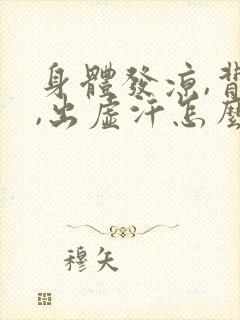 身體發凉,背
,出虛汗怎麽
穆矢